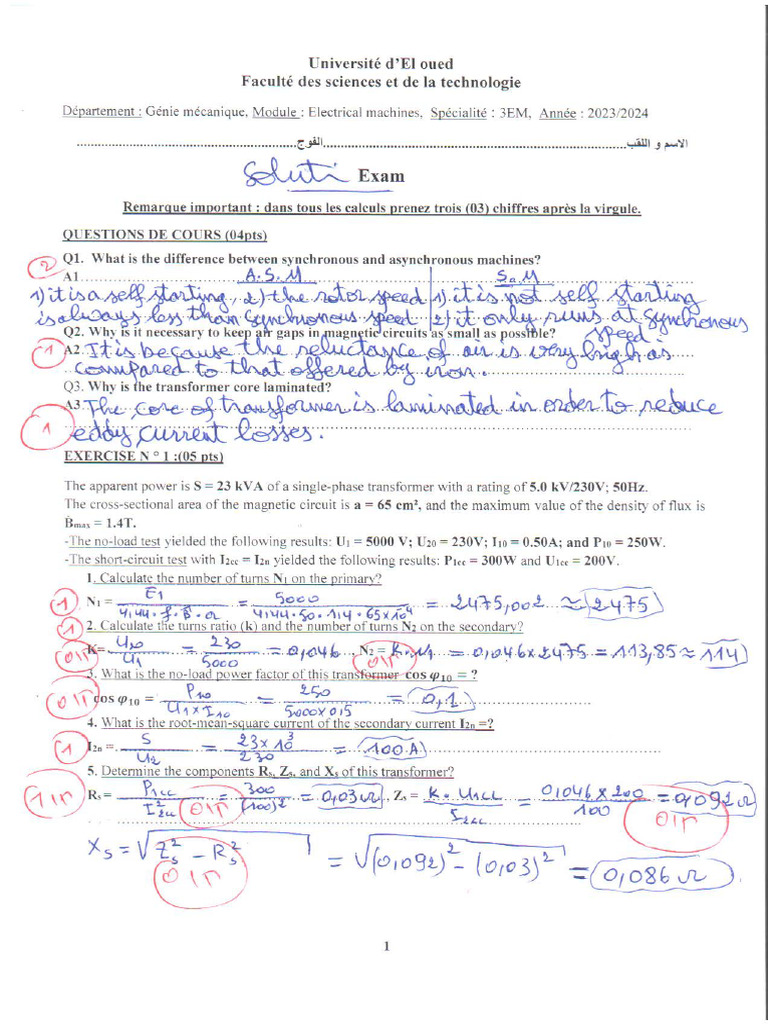 Université d'El oued
Faculté des sciences et de la technologie
Département : Génie mécanique, Module : Electrical machines, Spécialité : 3EM, Année : 2023/2024
الاسم و اللقب..........................................................الفوج..........................................................
Soluti Exam
Remarque important : dans tous les calculs prenez trois (03) chiffres après la virgule.
QUESTIONS DE COURS (04pts)
2 Q1. What is the difference between synchronous and asynchronous machines?
A1. A.S.M S.M
1) it is a self starting, 2) the rotor speed 1) it is not self starting
is always less than synchronous speed 2) it only runs at synchronous
speed
Q2. Why is it necessary to keep air gaps in magnetic circuits as small as possible?
1 A2. It is because the reluctance of air is very high as
compared to that offered by iron.
Q3. Why is the transformer core laminated?
A3. The core of transformer is laminated in order to reduce
1 eddy current losses.
EXERCISE N ° 1 :(05 pts)
The apparent power is S = 23 kVA of a single-phase transformer with a rating of 5.0 kV/230V; 50Hz.
The cross-sectional area of the magnetic circuit is a = 65 cm², and the maximum value of the density of flux is
Bmax = 1.4T.
-The no-load test yielded the following results: U1 = 5000 V; U20 = 230V; I10 = 0.50A; and P10 = 250W.
-The short-circuit test with I2cc = I2n yielded the following results: P1cc = 300W and U1cc = 200V.
1. Calculate the number of turns N1 on the primary?
1 N1 = E1 / 4,44.f.B.a = 5000 / 4,44.50.1,4.65x10⁻⁴ = 2475,002 ≈ 2475
1 2. Calculate the turns ratio (k) and the number of turns N2 on the secondary?
K= U20 / U1 = 230 / 5000 = 0,046 N2 = K.N1 = 0,046x2475 = 113,85 ≈ 114
0,5 0,5
3. What is the no-load power factor of this transformer cos φ10 = ?
0,5 cos φ10 = P10 / U1xI10 = 250 / 5000x0,5 = 0,1
4. What is the root-mean-square current of the secondary current I2n =?
1 I2n = S / U2 = 23x10³ / 230 = 100A
5. Determine the components Rs, Zs, and Xs of this transformer?
1,5 Rs = P1cc / I²2cc = 300 / (100)² = 0,03Ω, Zs = K.U1cc / I2cc = 0,046x200 / 100 = 0,092Ω
0,5 0,5
Xs = √(Zs² - Rs²) = √((0,092)² - (0,03)²) = 0,086Ω
0,5
1